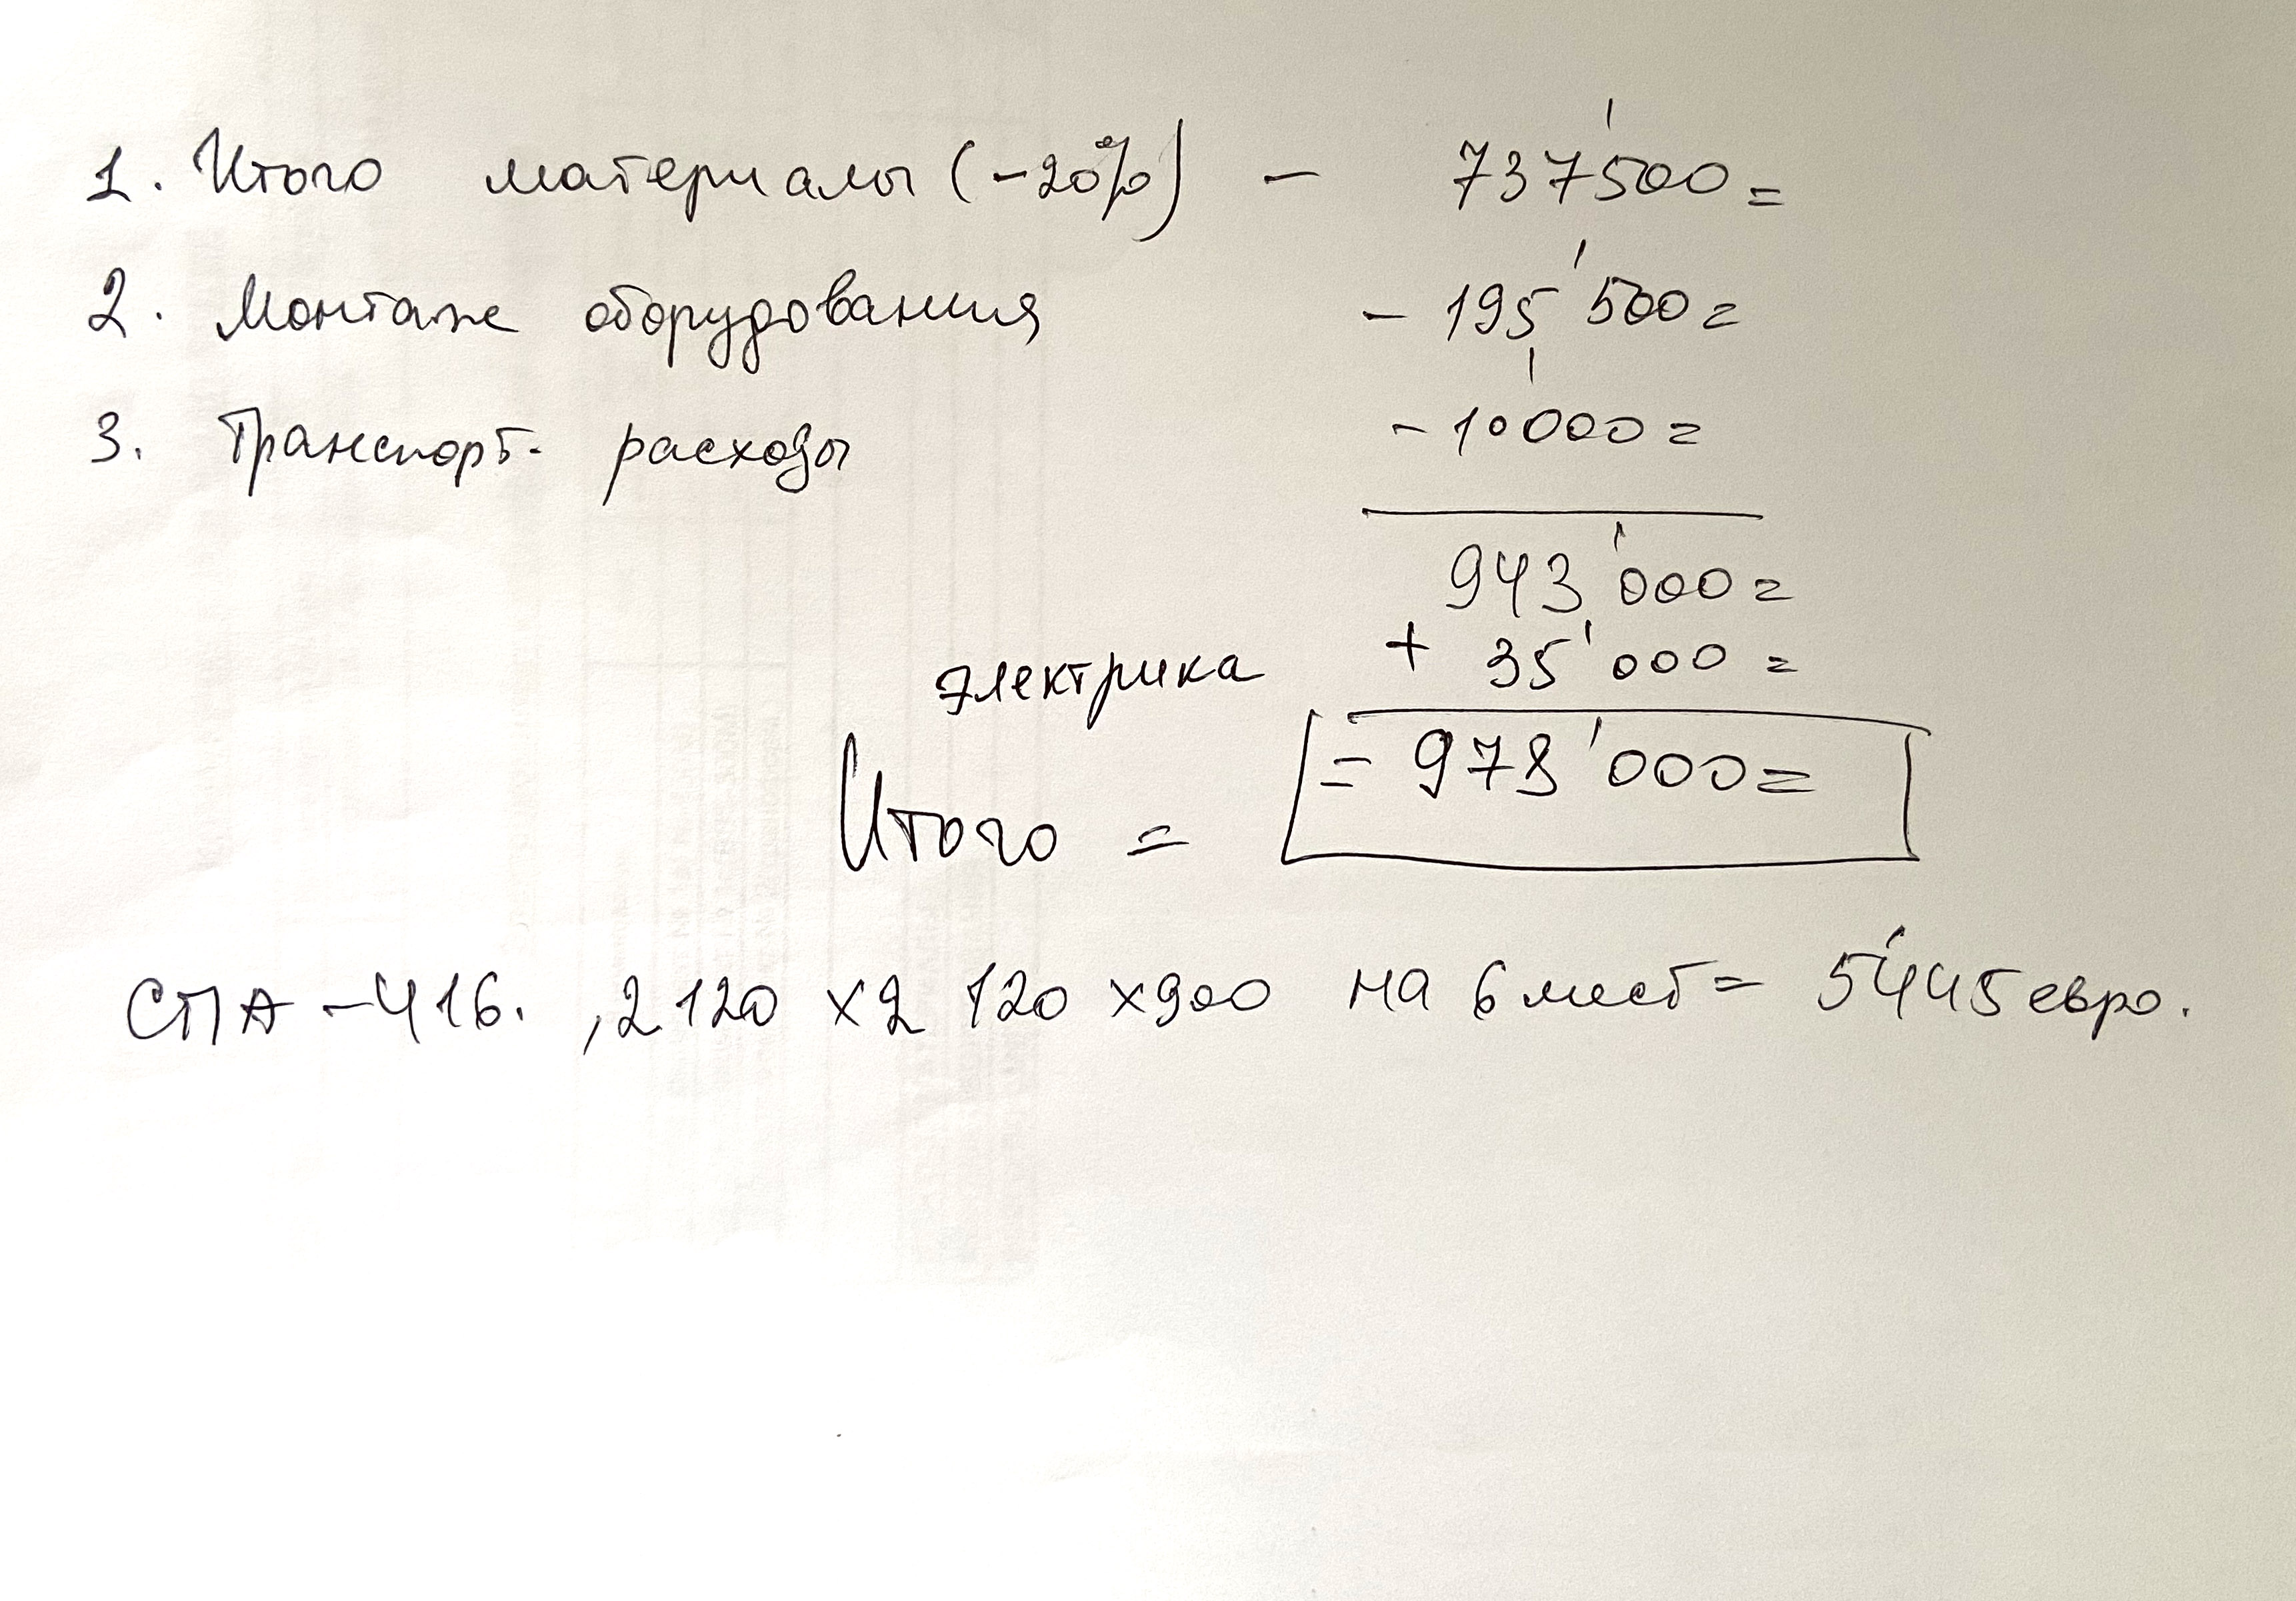 1. Итого материалы (-20%) - 737'500=
2. Монтаж оборудования - 195'500=
3. Транспорт. расходы - 10'000=
943'000=
электрика + 35'000=
Итого = = 978'000=
СПА-416. , 2120 х 2120 х 900 на 6 мест = 5'445 евро.